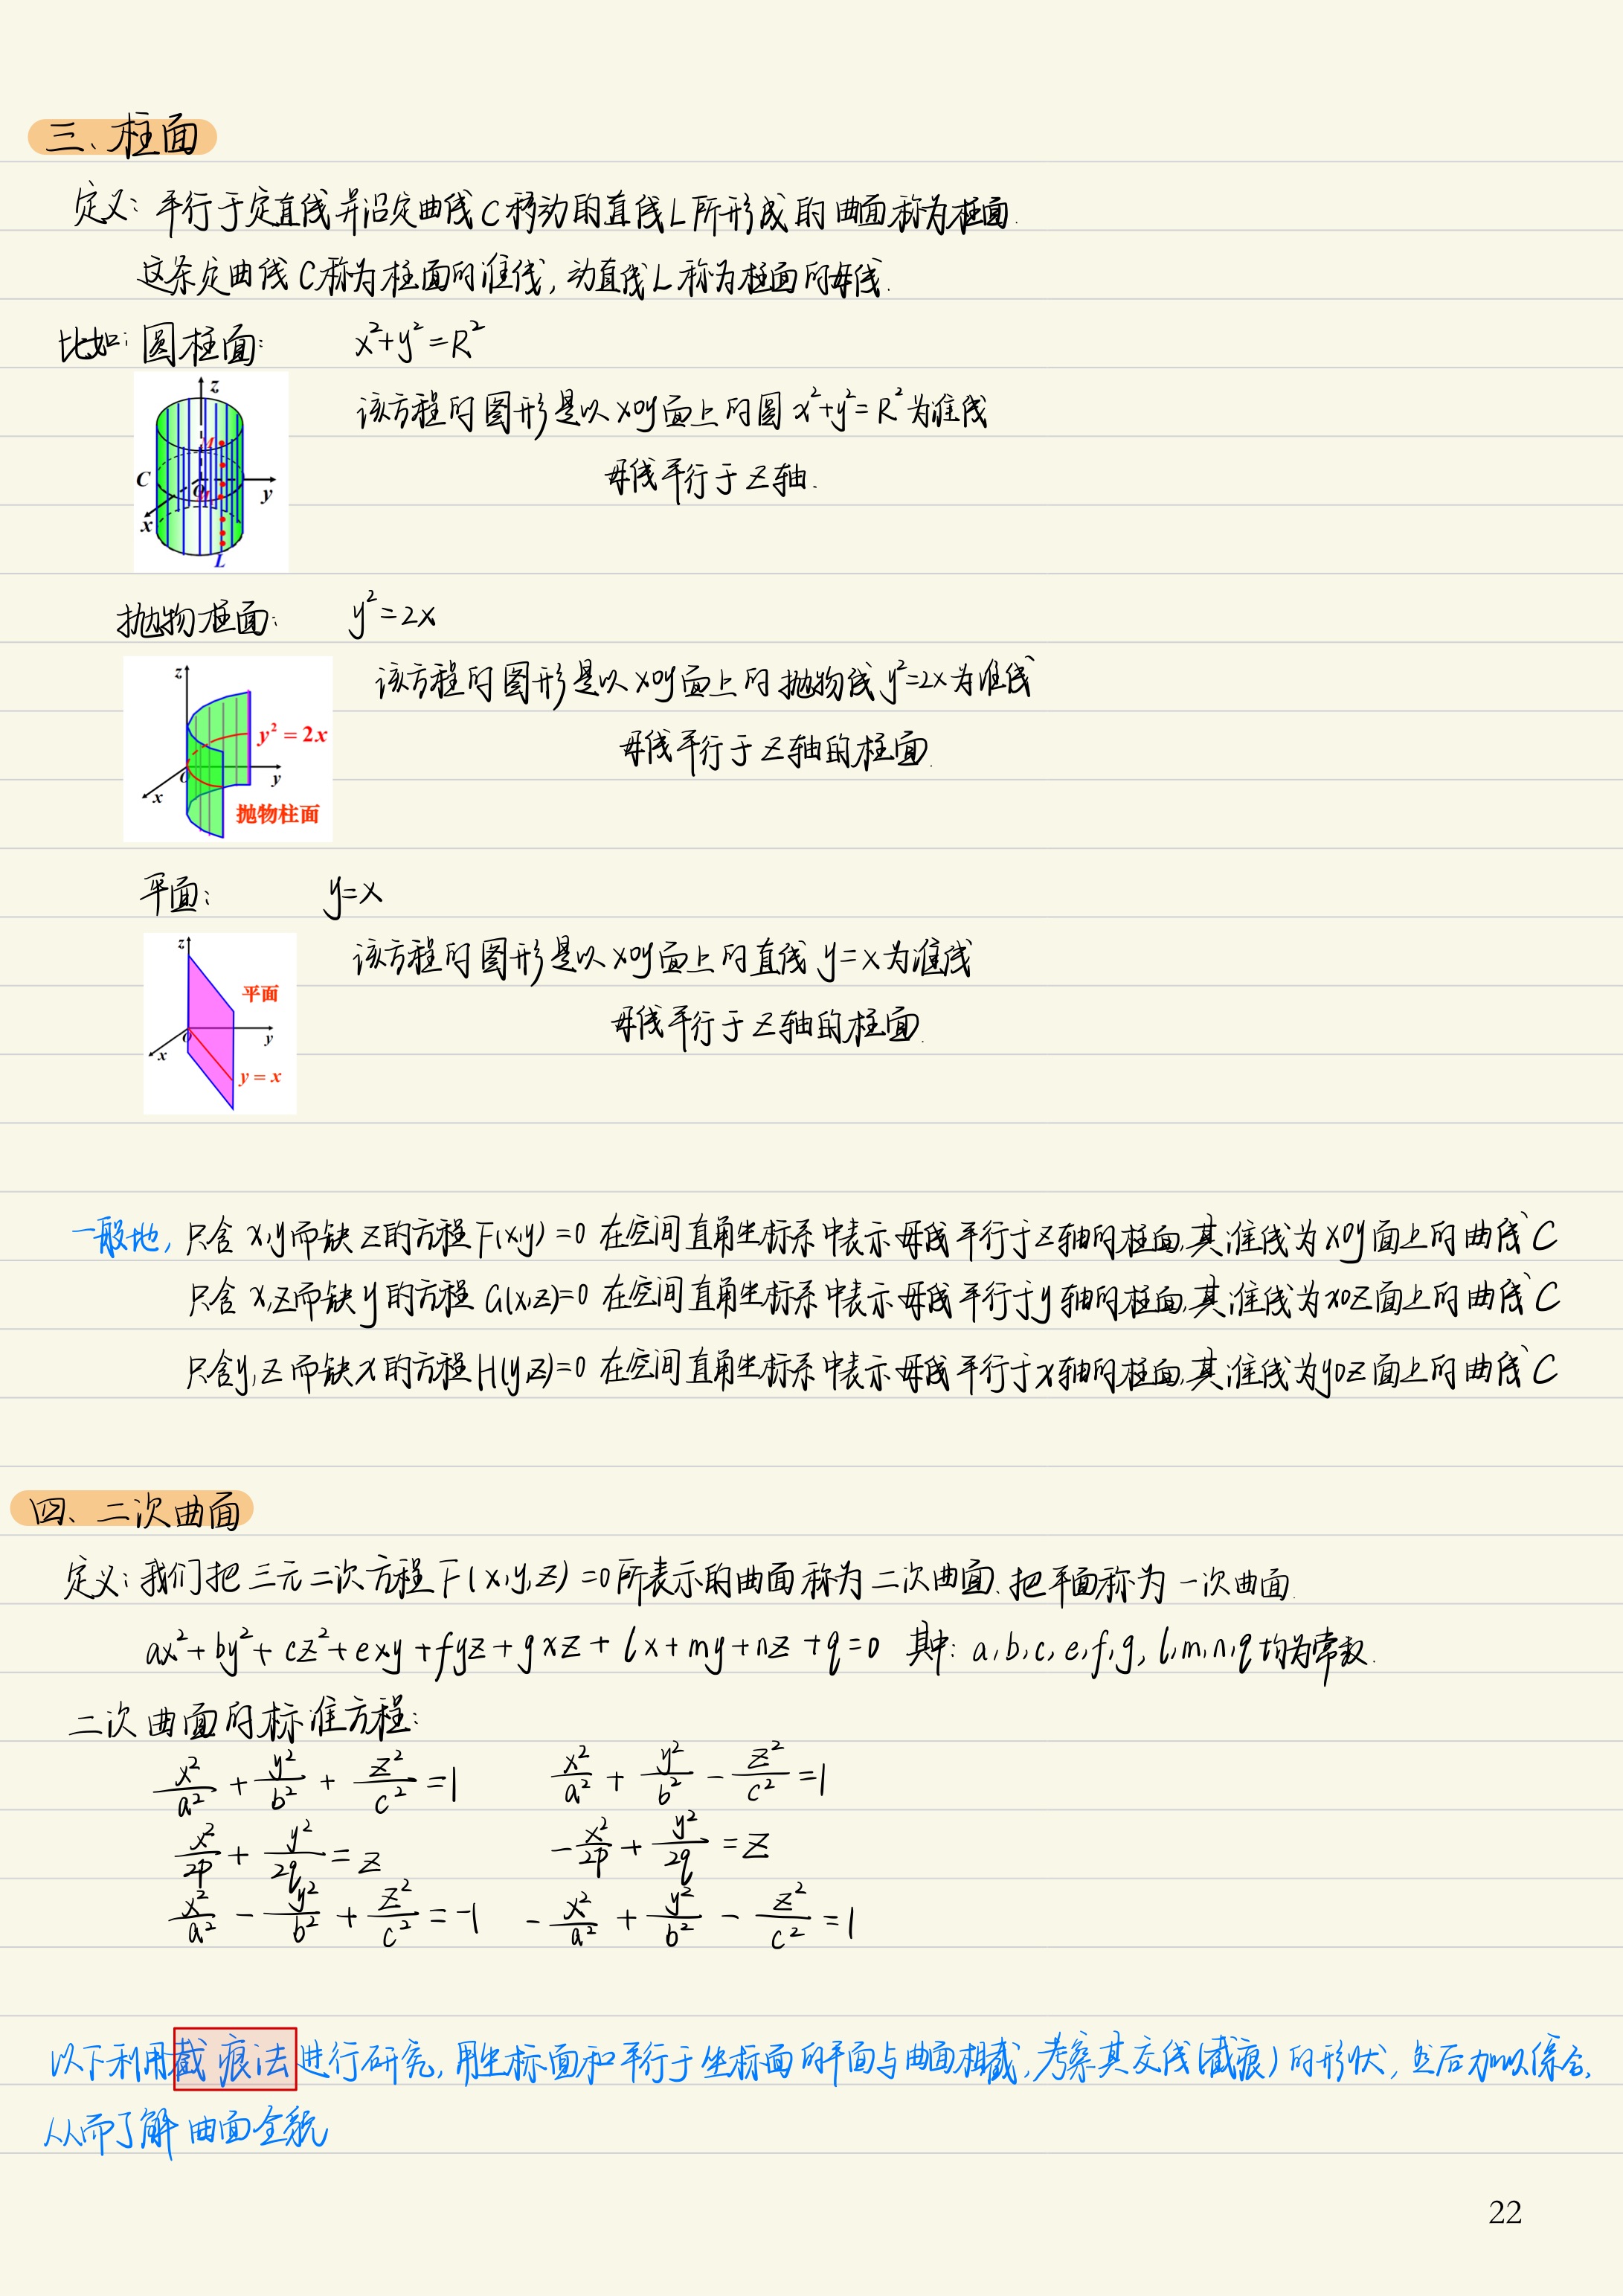 三、柱面
定义: 平行于定直线并沿定曲线C移动的直线L所形成的曲面称为柱面.
这条定曲线C称为柱面的准线, 动直线L称为柱面的母线.
比如: 圆柱面: x²+y²=R²
z
该方程的图形是以xoy面上的圆 x²+y²=R² 为准线
M
母线平行于z轴.
C
O
y
x
L
抛物柱面: y²=2x
z
该方程的图形是以xoy面上的抛物线 y²=2x为准线
y² = 2x
母线平行于z轴的柱面.
y
x
抛物柱面
平面: y=x
z
该方程的图形是以xoy面上的直线 y=x为准线
平面
母线平行于z轴的柱面.
O
y
x
y = x
一般地, 只含x,y而缺z的方程F(x,y)=0 在空间直角坐标系中表示母线平行于z轴的柱面,其准线为xoy面上的曲线C
只含x,z而缺y的方程 G(x,z)=0 在空间直角坐标系中表示母线平行于y轴的柱面,其准线为xoz面上的曲线C
只含y,z而缺x的方程H(y,z)=0 在空间直角坐标系中表示母线平行于x轴的柱面,其准线为yoz面上的曲线C
四、二次曲面
定义: 我们把三元二次方程 F(x,y,z)=0所表示的曲面称为二次曲面. 把平面称为一次曲面.
ax²+by²+cz²+exy+fyz+gxz+lx+my+nz+q=0 其中: a,b,c,e,f,g,l,m,n,q均为常数.
二次曲面的标准方程:
x²/a² + y²/b² + z²/c² =1 x²/a² + y²/b² - z²/c² =1
x²/2p + y²/2q = z -x²/2p + y²/2q = z
x²/a² - y²/b² + z²/c² =-1 -x²/a² + y²/b² - z²/c² =1
以下利用截痕法进行研究, 用坐标面和平行于坐标面的平面与曲面相截, 考察其交线(截痕)的形状, 然后加以综合,
从而了解曲面全貌
22